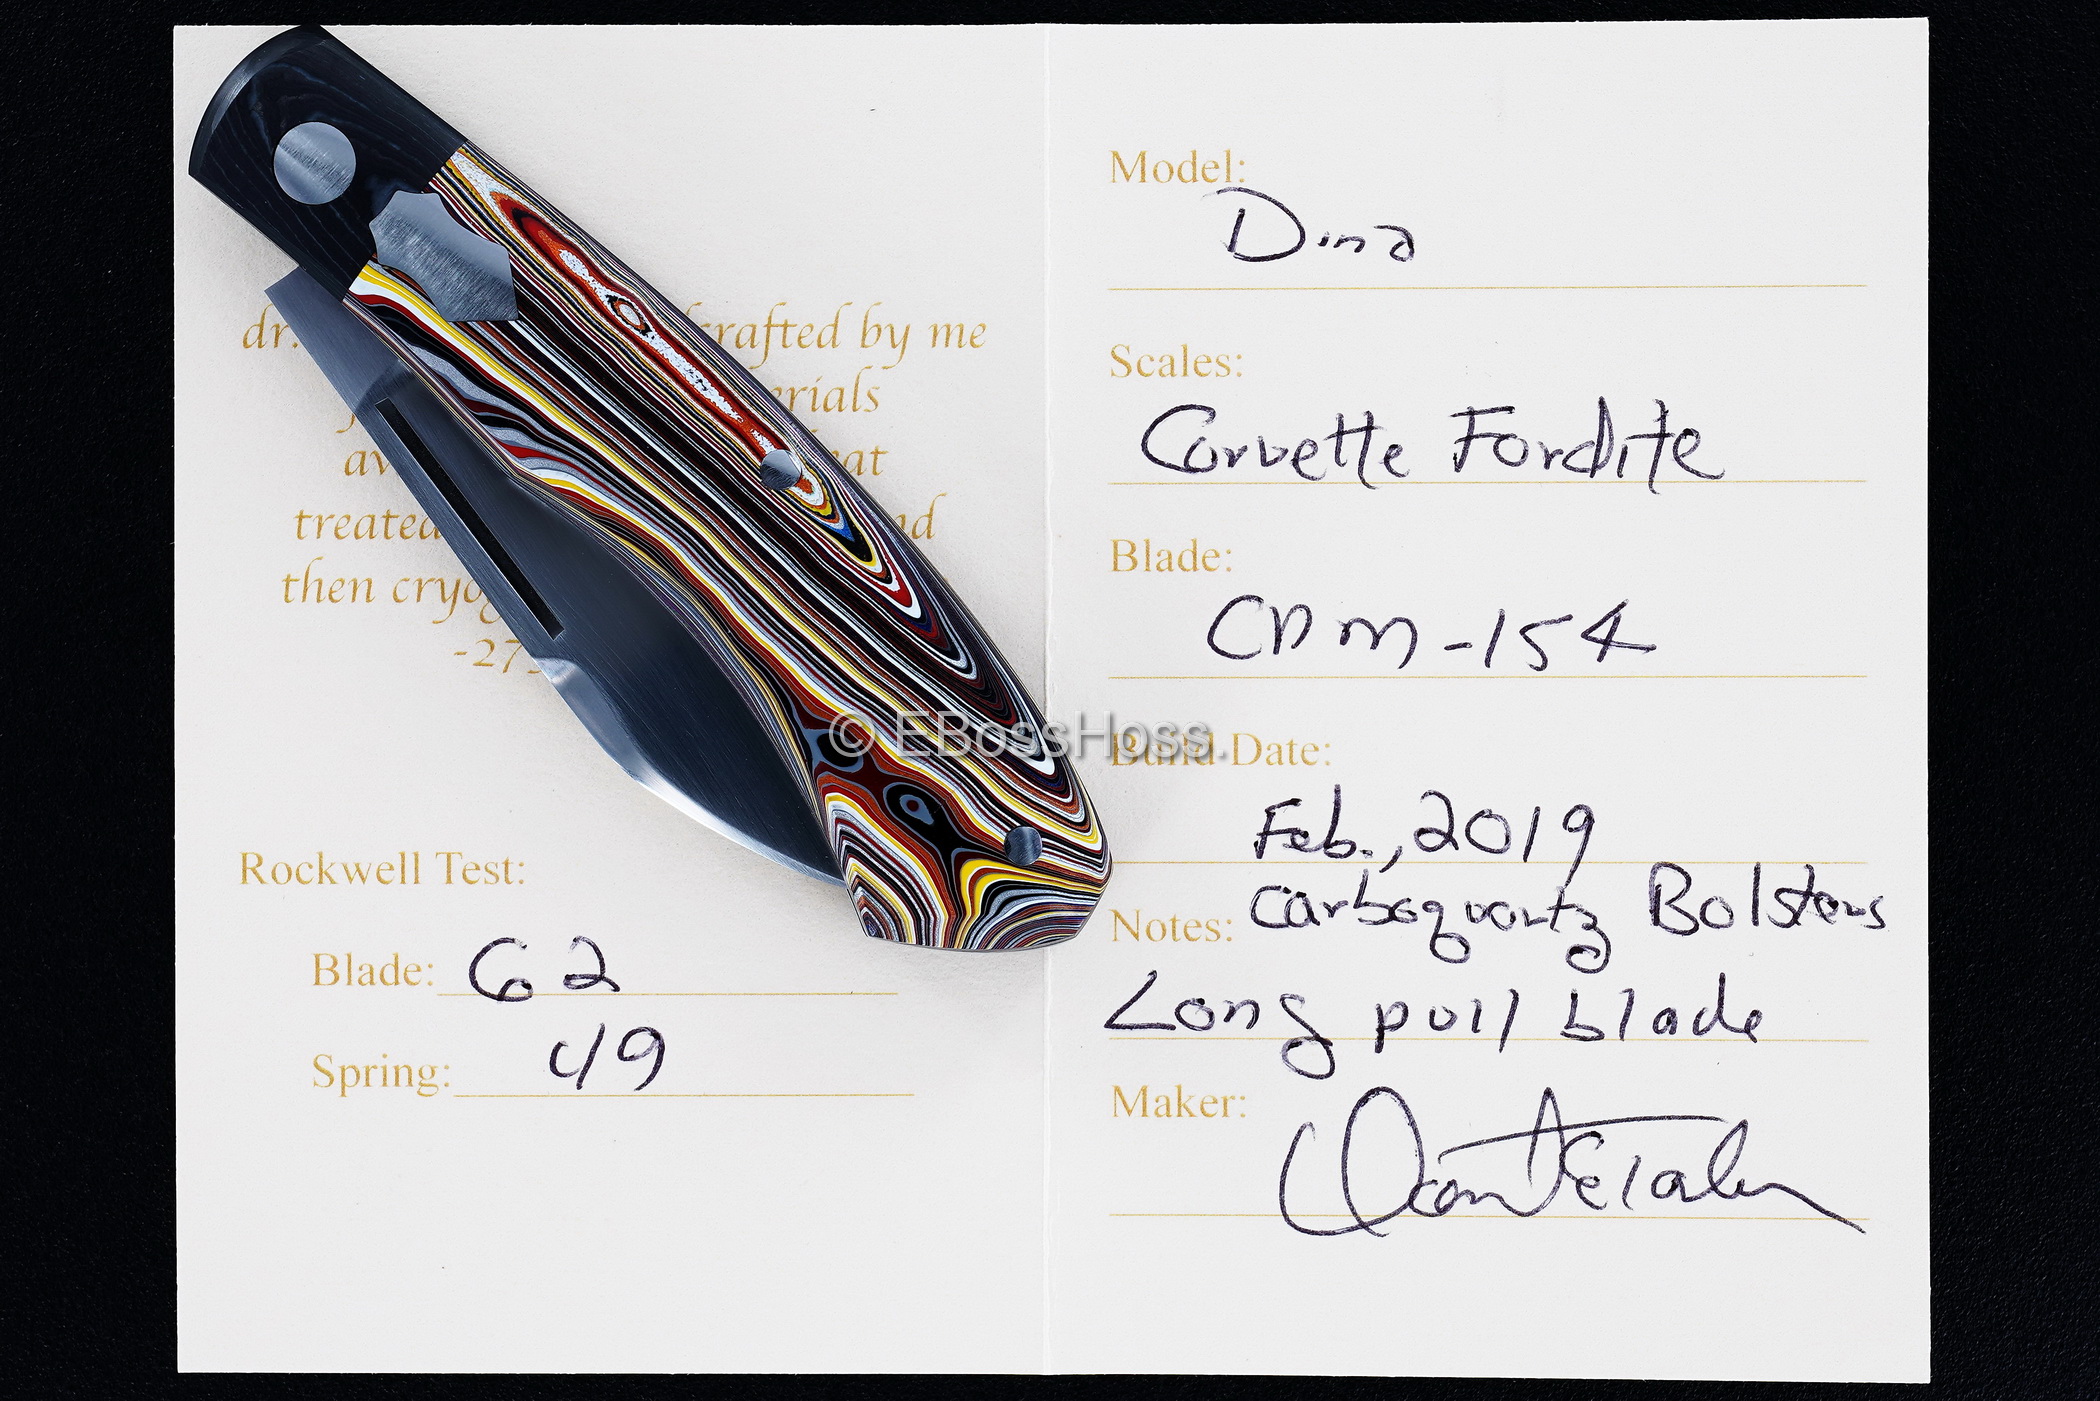 crafted by me
erials
av eat
treated nd
then cryog
-273
Rockwell Test:
Blade: 62
Spring: 49
Model:
Dina
Scales:
Corvette Fordite
Blade:
CPM-154
© EBossHoss.
Build Date:
Feb., 2019
Notes: Carboquartz Bolsters
Long pull blade
Maker: